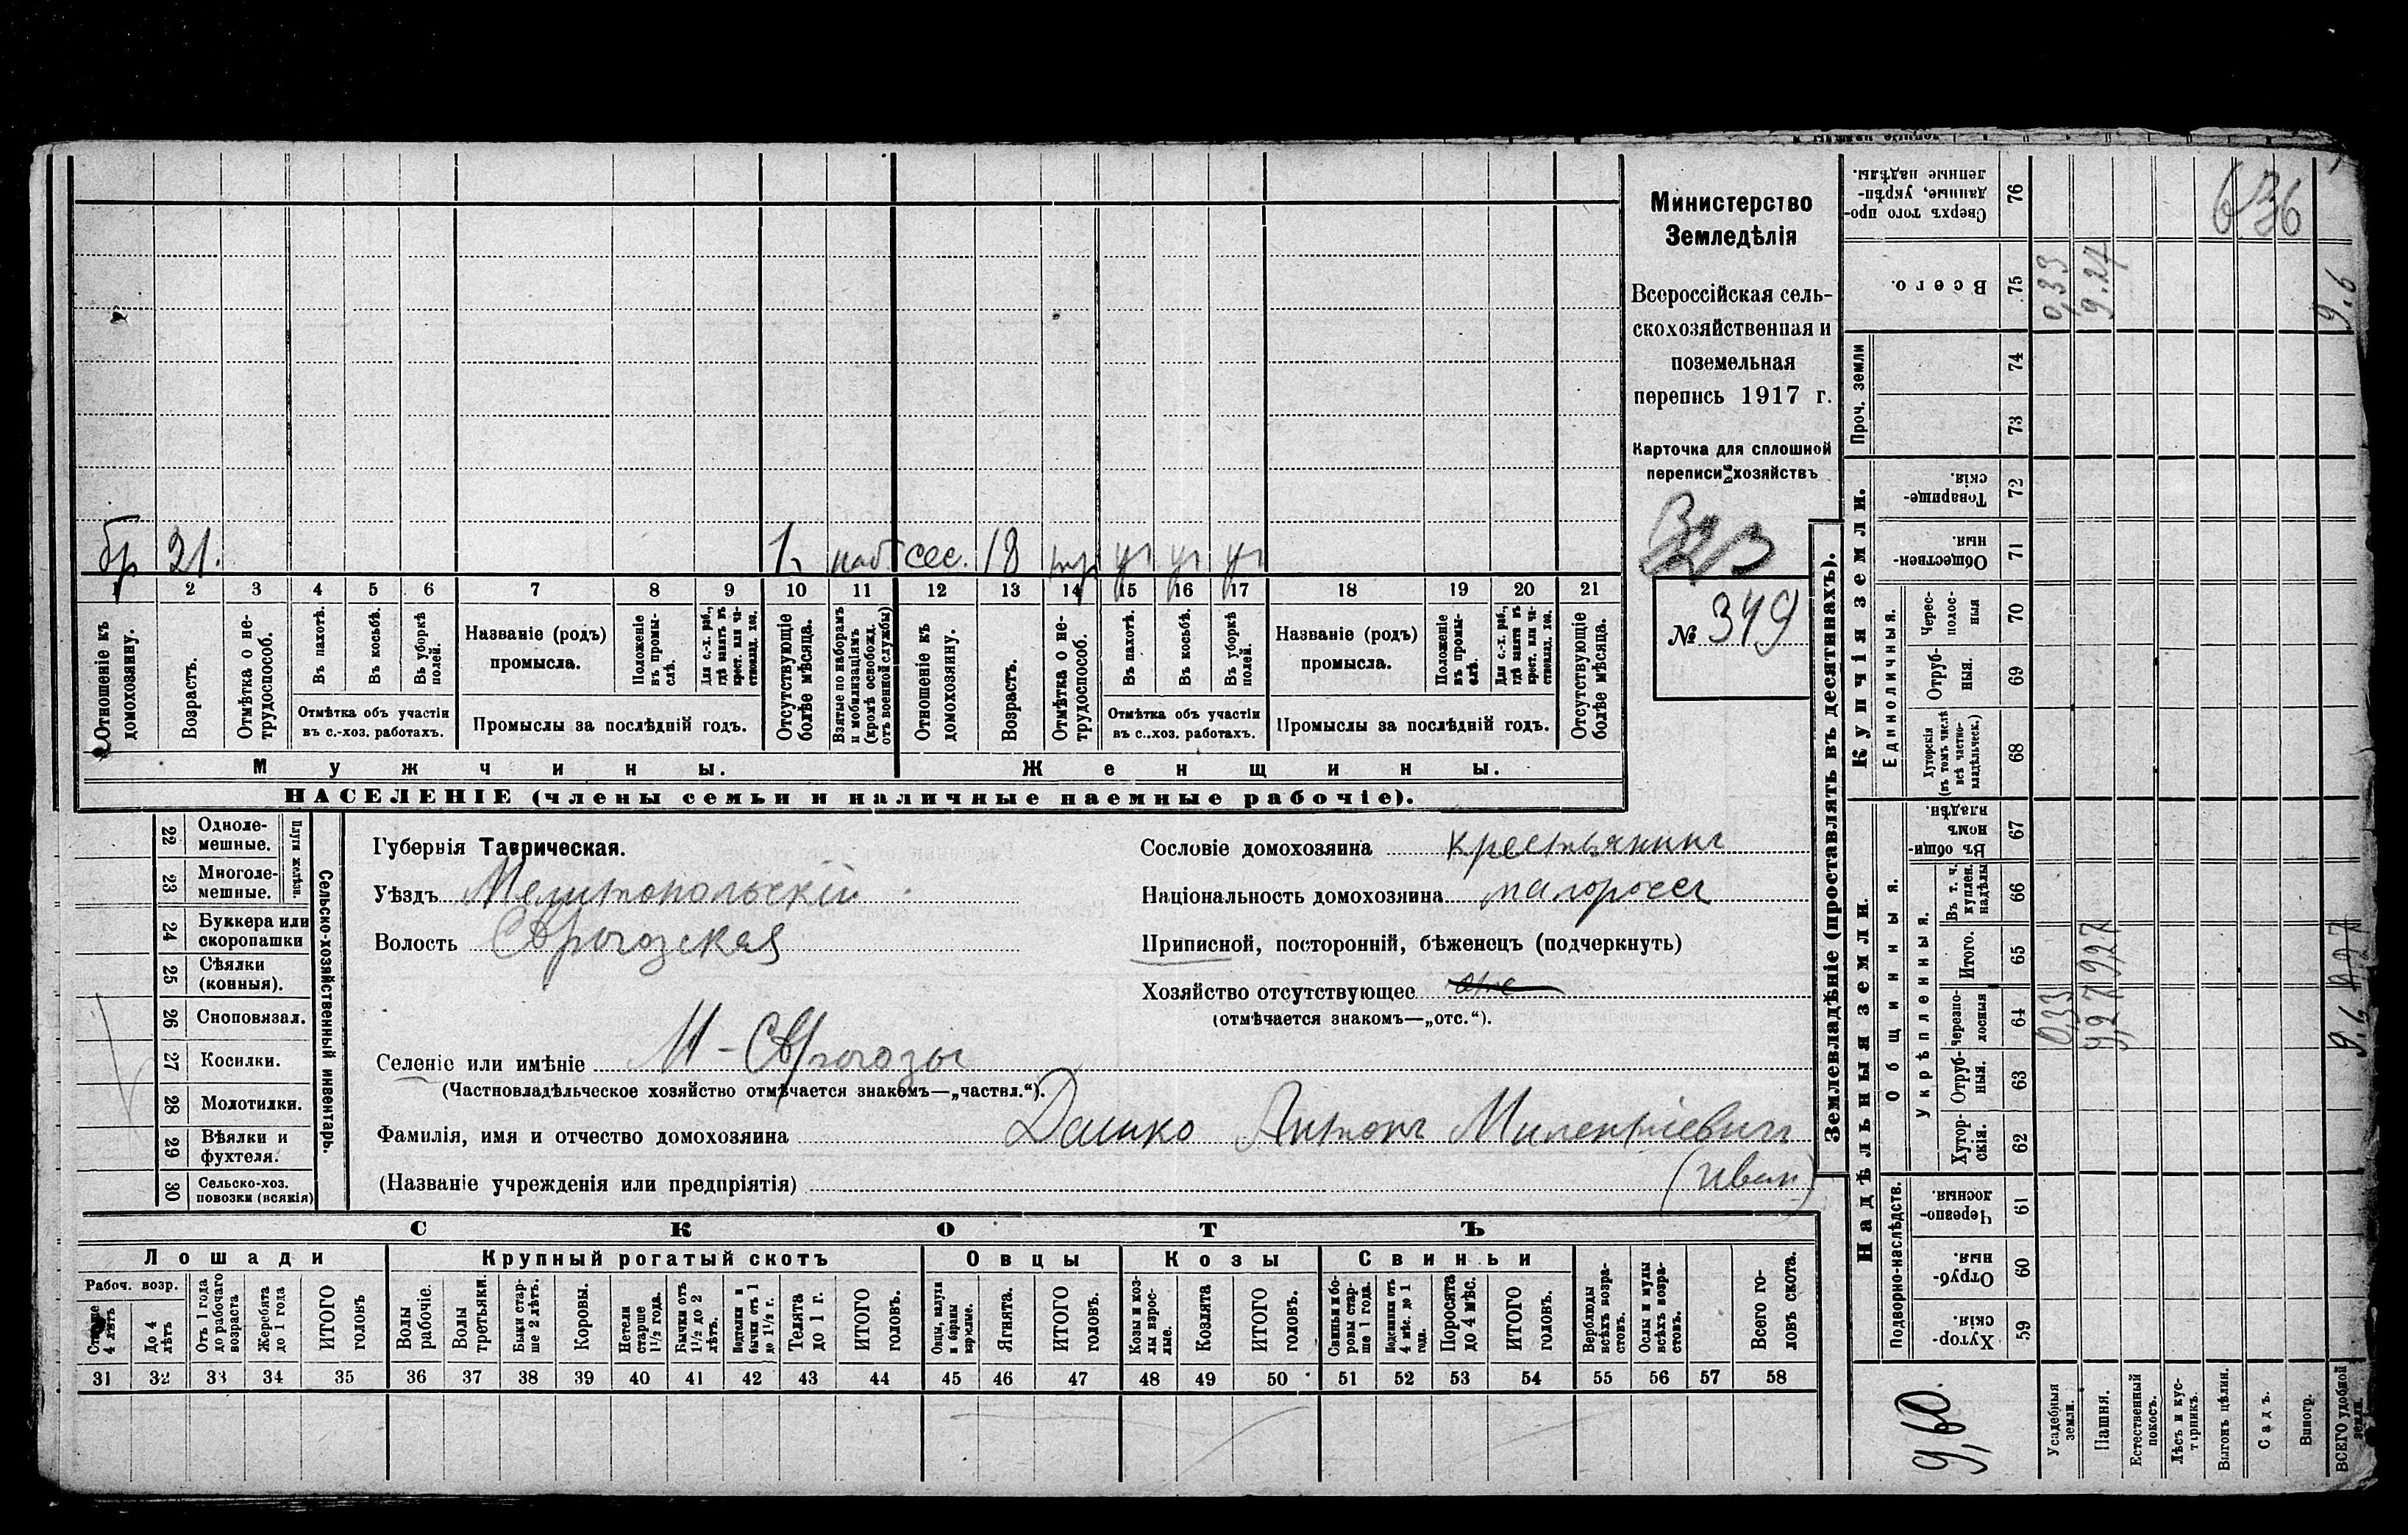 Министерство
Земледѣлія
Всероссійская сель-
скохозяйственная и
поземельная
перепись 1917 г.
Карточка для сплошной
переписи хозяйствъ
№ 349
бр 21. 1 наб сес. 18
1 2 3 4 5 6 7 8 9 10 11 12 13 14 15 16 17 18 19 20 21
Отношеніе къ домохозяину.
Возрастъ.
Отмѣтка о не-трудоспособ.
Въ пахотѣ.
Въ косьбѣ.
Въ уборкѣ полей.
Отмѣтка объ участіи
въ с.-хоз. работахъ.
Названіе (родъ)
промысла.
Положеніе въ промы-слѣ.
Для с.-х. раб., гдѣ занятъ въ крест. или ча-стновлад. хоз.
Промыслы за послѣдній годъ.
Отсутствующіе болѣе мѣсяца.
Взятые по наборамъ и мобилизаціямъ (кромѣ освобожд. отъ военной службы)
Отношеніе къ домохозяину.
Возрастъ.
Отмѣтка о не-трудоспособ.
Въ пахотѣ.
Въ косьбѣ.
Въ уборкѣ полей.
Отмѣтка объ участіи
въ с.-хоз. работахъ.
Названіе (родъ)
промысла.
Положеніе въ промы-слѣ.
Для с.-х. раб., гдѣ занятъ въ крест. или ча-стновлад. хоз.
Промыслы за послѣдній годъ.
Отсутствующіе болѣе мѣсяца.
Мужчины. Женщины.
НАСЕЛЕНІЕ (члены семьи и наличные наемные рабочіе).
Сельско-хозяйственный инвентарь.
22 Одноле-мешные.
23 Многоле-мешные.
24 Буккера или скоропашки
25 Сѣялки (конныя).
26 Сноповязал.
27 Косилки.
28 Молотилки.
29 Вѣялки и фухтеля.
30 Сельско-хоз. повозки (всякія)
Губернія Таврическая.
Уѣздъ Мелитопольскій
Волость
Селеніе или имѣніе
(Частновладѣльческое хозяйство отмѣчается знакомъ—„частвл.“).
Фамилія, имя и отчество домохозяина Дашко Антонъ Милентіевич
(Названіе учрежденія или предпріятія) (Иван)
Сословіе домохозяина крестьянинъ
Національность домохозяина малороссъ
Приписной, посторонній, бѣженецъ (подчеркнуть)
Хозяйство отсутствующее
(отмѣчается знакомъ—„отс.“).
СКОТЪ
Лошади Крупный рогатый скотъ Овцы Козы Свиньи
Рабоч. возр.
Старше 4 лѣтъ
До 4 лѣтъ
Отъ 1 года до рабочаго возраста
Жеребята до 1 года
ИТОГО головъ
Волы рабочіе.
Волы третьяки.
Быки стар-ше 2 лѣтъ.
Коровы.
Нетели старше 1½ года.
Бычки отъ 1½ до 2 лѣтъ.
Подтелки и бычки отъ 1 до 1½ г.
Телята до 1 г.
ИТОГО головъ.
Овцы, валухи и бараны взрослые.
Ягнята.
ИТОГО головъ.
Козы и коз-лы взрос-лые.
Козлята
ИТОГО головъ.
Свиньи и бо-ровы стар-ше 1 года.
Подсвинки отъ 4 мѣс. до 1 года.
Поросята до 4 мѣс.
ИТОГО головъ.
Верблюды всѣхъ возра-стовъ.
Ослы и мулы всѣхъ возра-стовъ.
Всего го-ловъ скота.
31 32 33 34 35 36 37 38 39 40 41 42 43 44 45 46 47 48 49 50 51 52 53 54 55 56 57 58
Землевладѣніе (проставлять въ десятинахъ).
Надѣльныя земли. Купчія земли. Проч. земли
Подворно-наслѣдств. Общинныя. Единоличныя.
Укрѣпленныя.
Хутор-скія. 59
Отруб-ныя. 60
Черезпо-лосныя. 61
Хутор-скія. 62
Отруб-ныя. 63
Черезпо-лосныя 64
Итого. 65
Въ т. ч. куплен. надѣлы 66
Въ общин-номъ владѣн. 67
Хуторскія (въ томъ числѣ всѣ частно-владѣльческ.) 68
Отруб-ныя. 69
Черес-полос-ныя 70
Обществен-ныя. 71
Товарище-скія. 72
73
74
Всего. 75
Сверхъ того про-данные, укрѣп-ленные надѣлы. 76
9,60.
Усадебныя земли. 0,33 0,33
Пашня. 9,27 9,27 9.27
Естественный покосъ.
Лѣсъ и кус-тарникъ.
Выгонъ цѣлин.
Садъ.
Виногр.
ВСЕГО удобной земли. 9.6 9,27 9.6
636